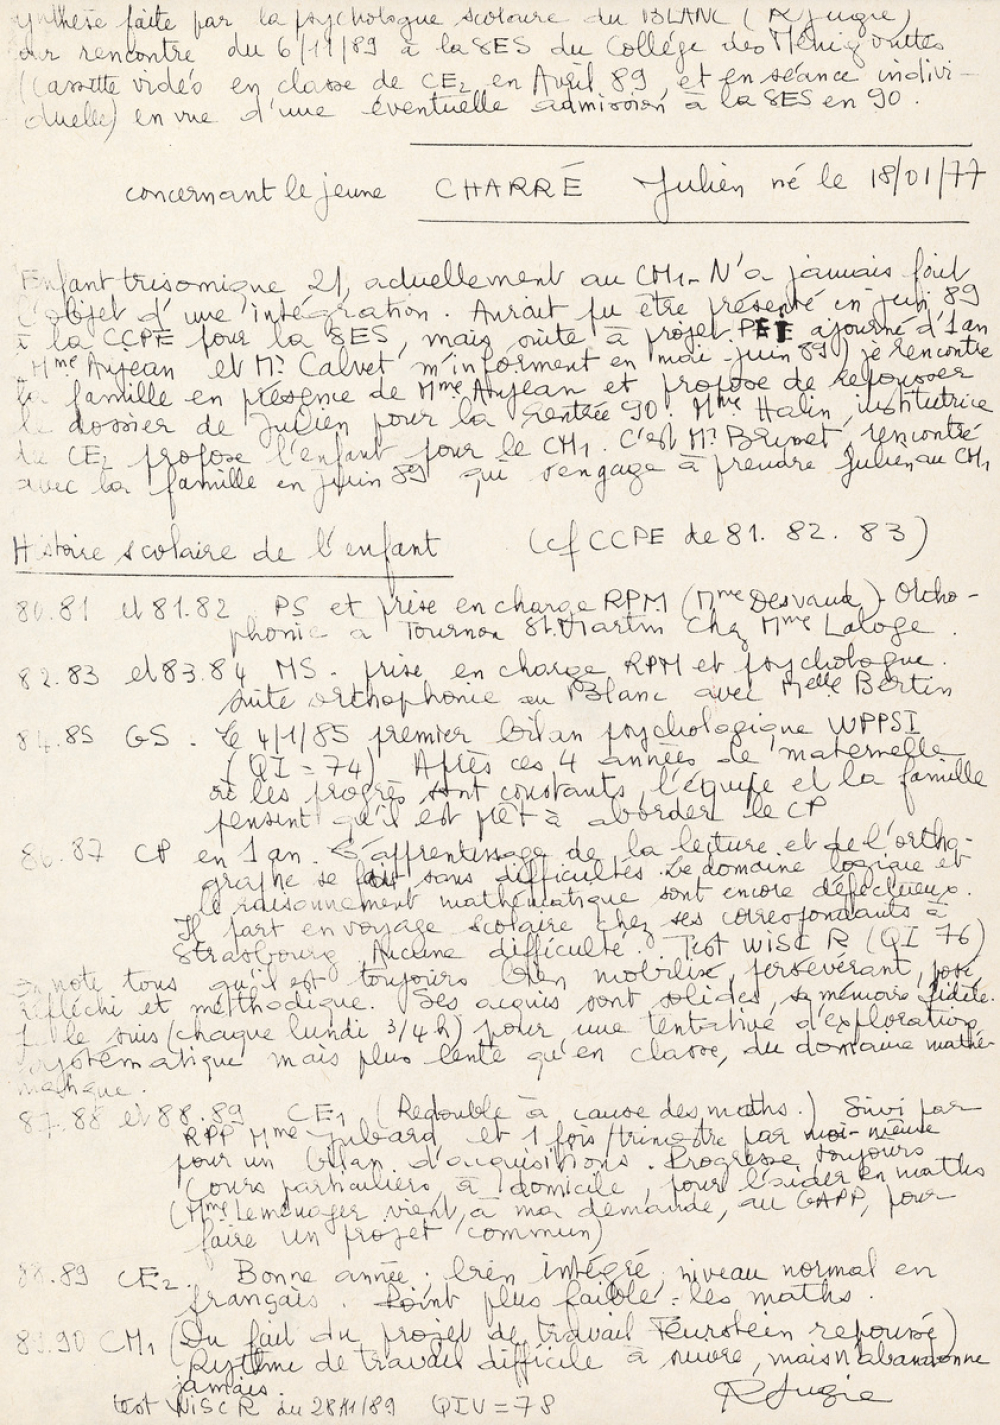 synthèse faite par la psychologue scolaire du BLANC (R Jugie)
sur rencontre du 6/11/89 à la SES du Collège des Ménigouttes
(Cassette vidéo en classe de CE2 en Avril 89 et en séance indivi-
duelle) en vue d'une éventuelle admission à la SES en 90.
concernant le jeune CHARRÉ Julien né le 18/01/77
Enfant trisomique 21, actuellement au CM1 - N'a jamais fait
l'objet d'une intégration. Aurait pu être présenté en juin 89
à la CCPE pour la SES, mais suite à projet ajourné d'1 an
(Mme Anjean et Mr Calvet m'informent en mai-juin 89) je rencontre
la famille en présence de Mme Anjean et propose de repousser
le dossier de Julien pour la rentrée 90. Mme Halin, institutrice
de CE2 propose l'enfant pour le CM1. C'est Mr Brunet, rencontré
avec la famille en juin 89 qui s'engage à prendre Julien au CM1
Histoire scolaire de l'enfant (cf CCPE de 81. 82. 83)
80.81 et 81.82 PS et prise en charge RPM (Mme Desvaud) - Ortho-
phonie à Tournon St. Martin chez Mme Laloge.
82.83 et 83.84 MS. prise en charge RPM et psychologue.
suite orthophonie au Blanc avec Melle Bertin
84.85 GS. Le 4/1/85 premier bilan psychologique WPPSI
(QI = 74) Après ces 4 années de maternelle
où les progrès sont constants, l'équipe et la famille
pensent qu'il est prêt à aborder le CP
86.87 CP en 1 an. L'apprentissage de la lecture et de l'ortho-
graphe se fait sans difficultés. Le domaine logique et
le raisonnement mathématique sont encore défectueux.
Il part en voyage scolaire chez ses correspondants à
Strasbourg. Aucune difficulté. Test WISC R (QI 76)
On note tous qu'il est toujours bien mobilisé, persévérant, posé,
réfléchi et méthodique. Ses acquis sont solides, sa mémoire fidèle.
Je le suis (chaque lundi 3/4 h) pour une tentative d'exploration
systématique mais plus lente qu'en classe, du domaine mathé-
matique.
87.88 et 88.89 CE1 (Redouble à cause des maths.) Suivi par
RPP Mme Jubard et 1 fois/trimestre par moi-même
pour un bilan d'acquisitions. Progresse toujours
Cours particuliers à domicile, pour l'aider en maths
(Mme Leménager vient, à ma demande, au GAPP, pour
faire un projet commun)
88.89 CE2. Bonne année; bien intégré, niveau normal en
français. Point plus faible = les maths.
89.90 CM1 (Du fait du projet de travail Feurstein repoussé)
Rythme de travail difficile à suivre, mais n'abandonne
jamais.
test WISC R du 28/11/89 QIV = 78
RJugie